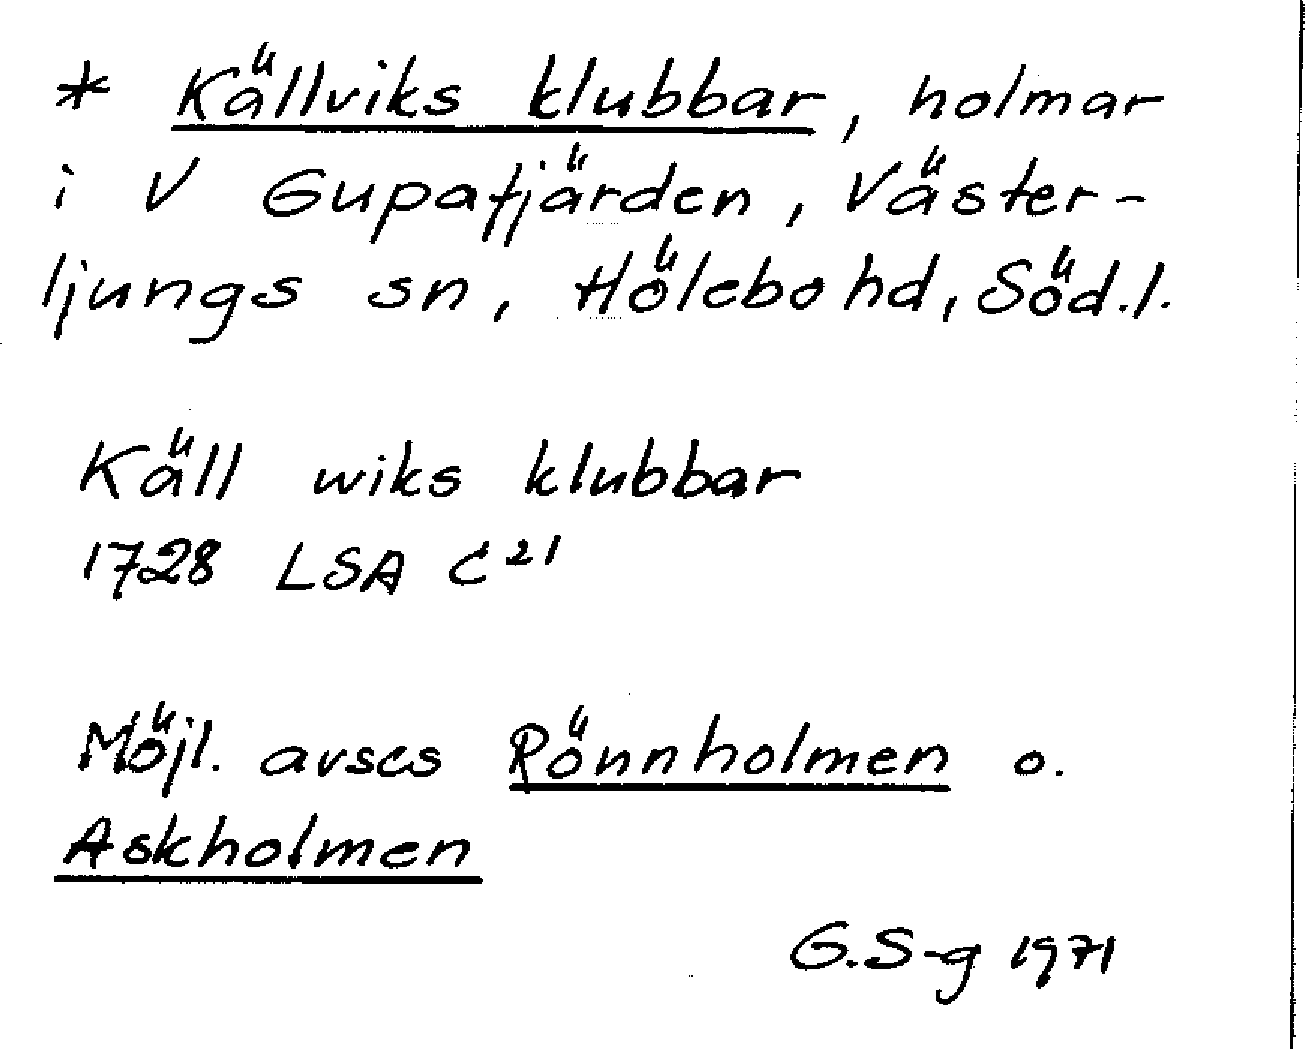 * Källviks klubbar, holmar
i V Gupafjärden, Väster-
ljungs sn, Hölebo hd, Söd.l.
Käll wiks klubbar
1728 LSA C²¹
Möjl. avses Rönnholmen o.
Askholmen
G.S-g 1971